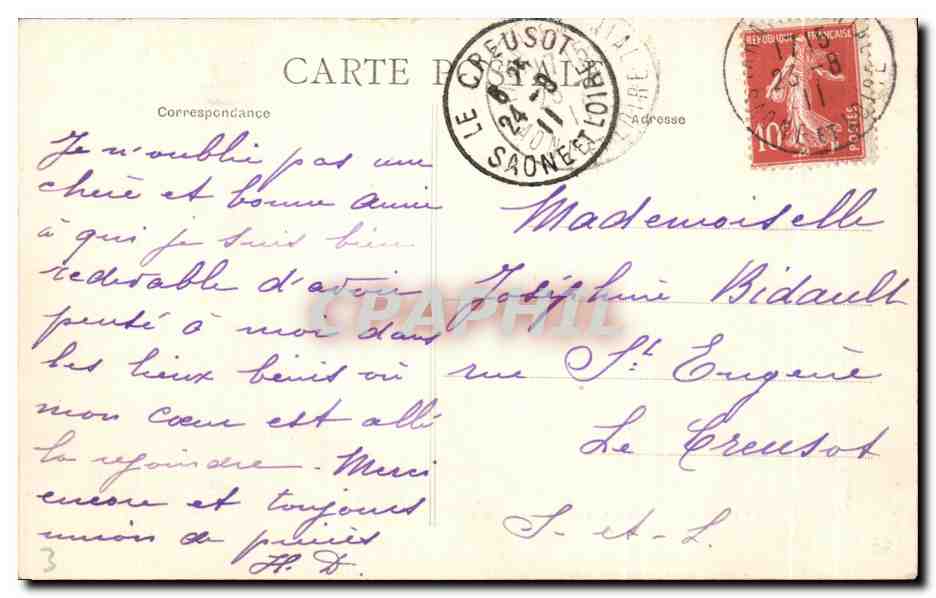 CARTE POSTALE
Correspondance
Adresse
LE CREUSOT
SAONE ET LOIRE
24 -8
11
REPUBLIQUE FRANÇAISE
10
POSTES
Je n'oublie pas une
chère et bonne Amie
à qui je suis bien
redevable d'avoir
pensé à moi dans
les lieux bénis où
mon cœur est allé
la rejoindre. Merci
encore et toujours
union de prières
H. D.
Mademoiselle
Joséphine Bidault
rue St. Eugène
Le Creusot
S. et. L.
CPAPHIL
3